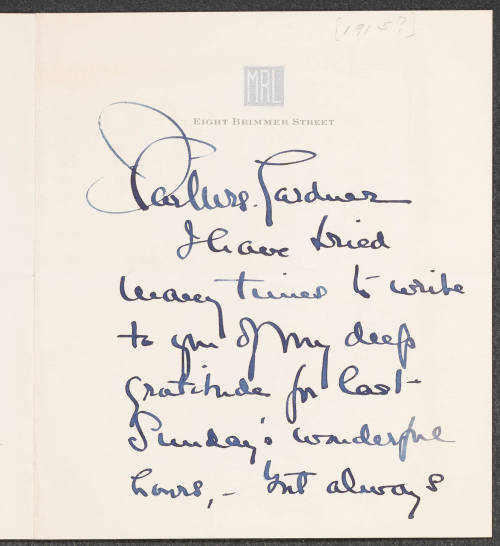 [1915?]
MRL
EIGHT BRIMMER STREET
Dear Mrs. Gardner
I have tried
many times to write
to you of my deep
gratitude for last
Sunday's wonderful
hours, – but always